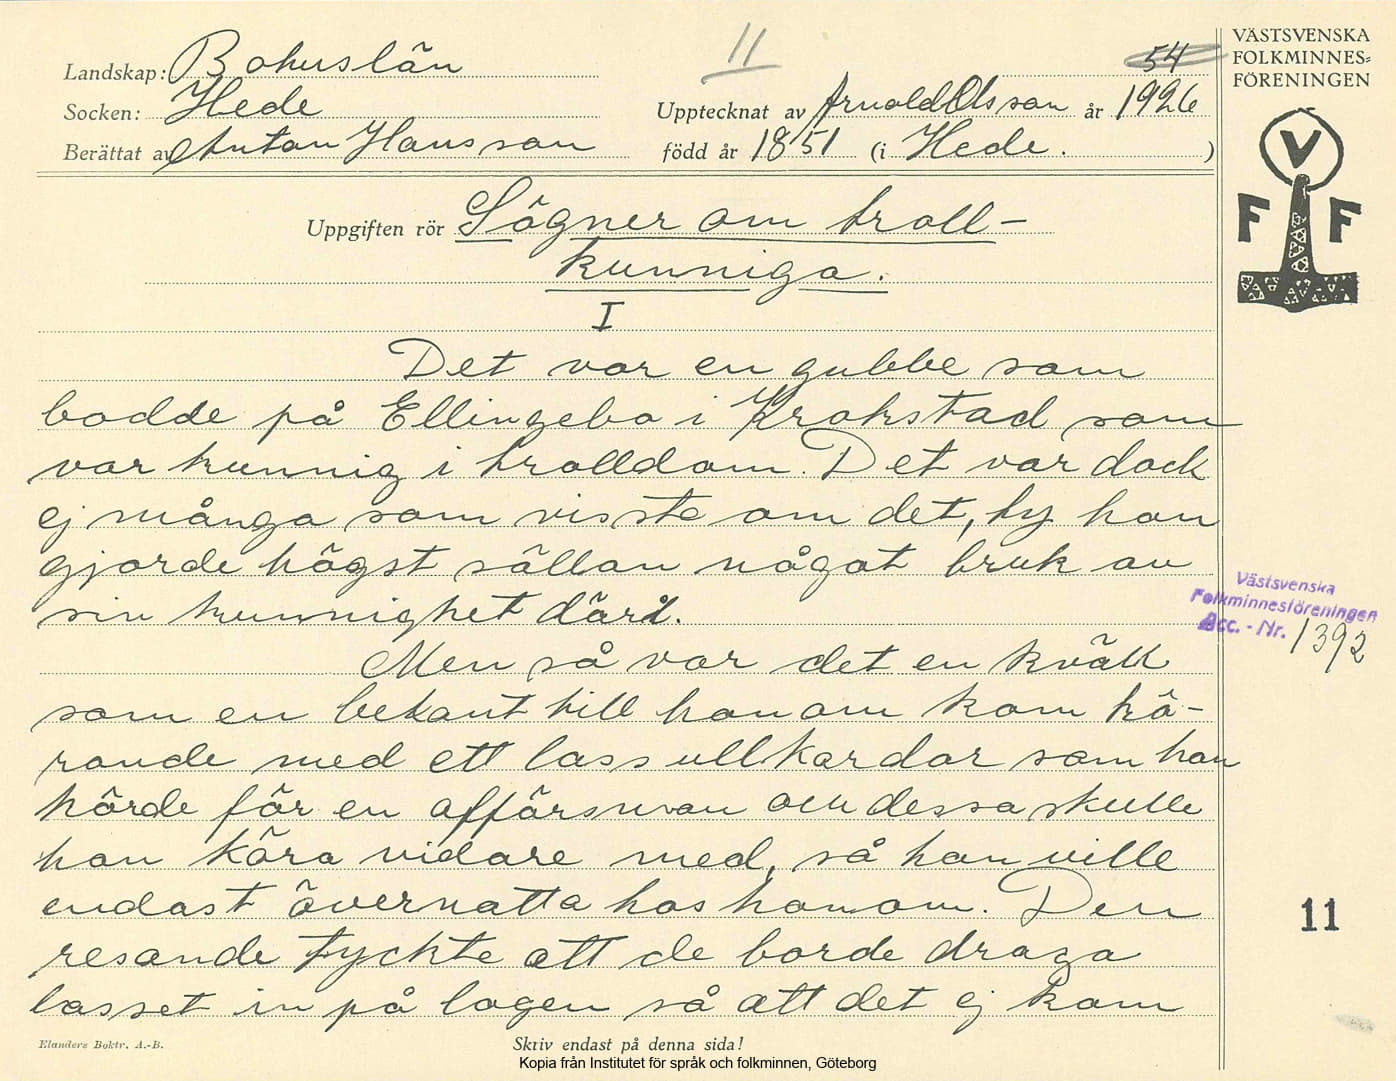 11
54
VÄSTSVENSKA
FOLKMINNES=
FÖRENINGEN
V
F F
Landskap: Bohuslän
Socken: Hede Upptecknat av Arnold Olsson år 1926
Berättat av Anton Hansson född år 1851 (i Hede. )
Uppgiften rör Sägner om troll-
kunniga.
I
Det var en gubbe som
bodde på Ellingebo i Krokstad som
var kunnig i trolldom. Det var dock
ej många som visste om det, ty han
gjorde högst sällan något bruk av
sin kunnighet däri.
Västsvenska
Folkminnesföreningen
Acc. - Nr. 1392
Men så var det en kväll
som en bekant till honom kom kö-
rande med ett lass ullkardor som han
körde för en affärsman och dessa skulle
han köra vidare med, så han ville
endast övernatta hos honom. Den
11
resande tyckte att de borde draga
lasset in på logen så att det ej kom
Elanders Boktr. A.-B.
Skriv endast på denna sida!
Kopia från Institutet för språk och folkminnen, Göteborg